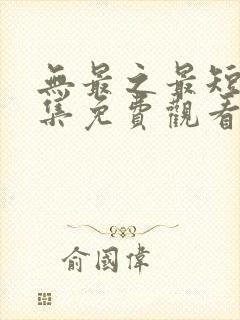 無最之最短
集免費觀看
俞國偉